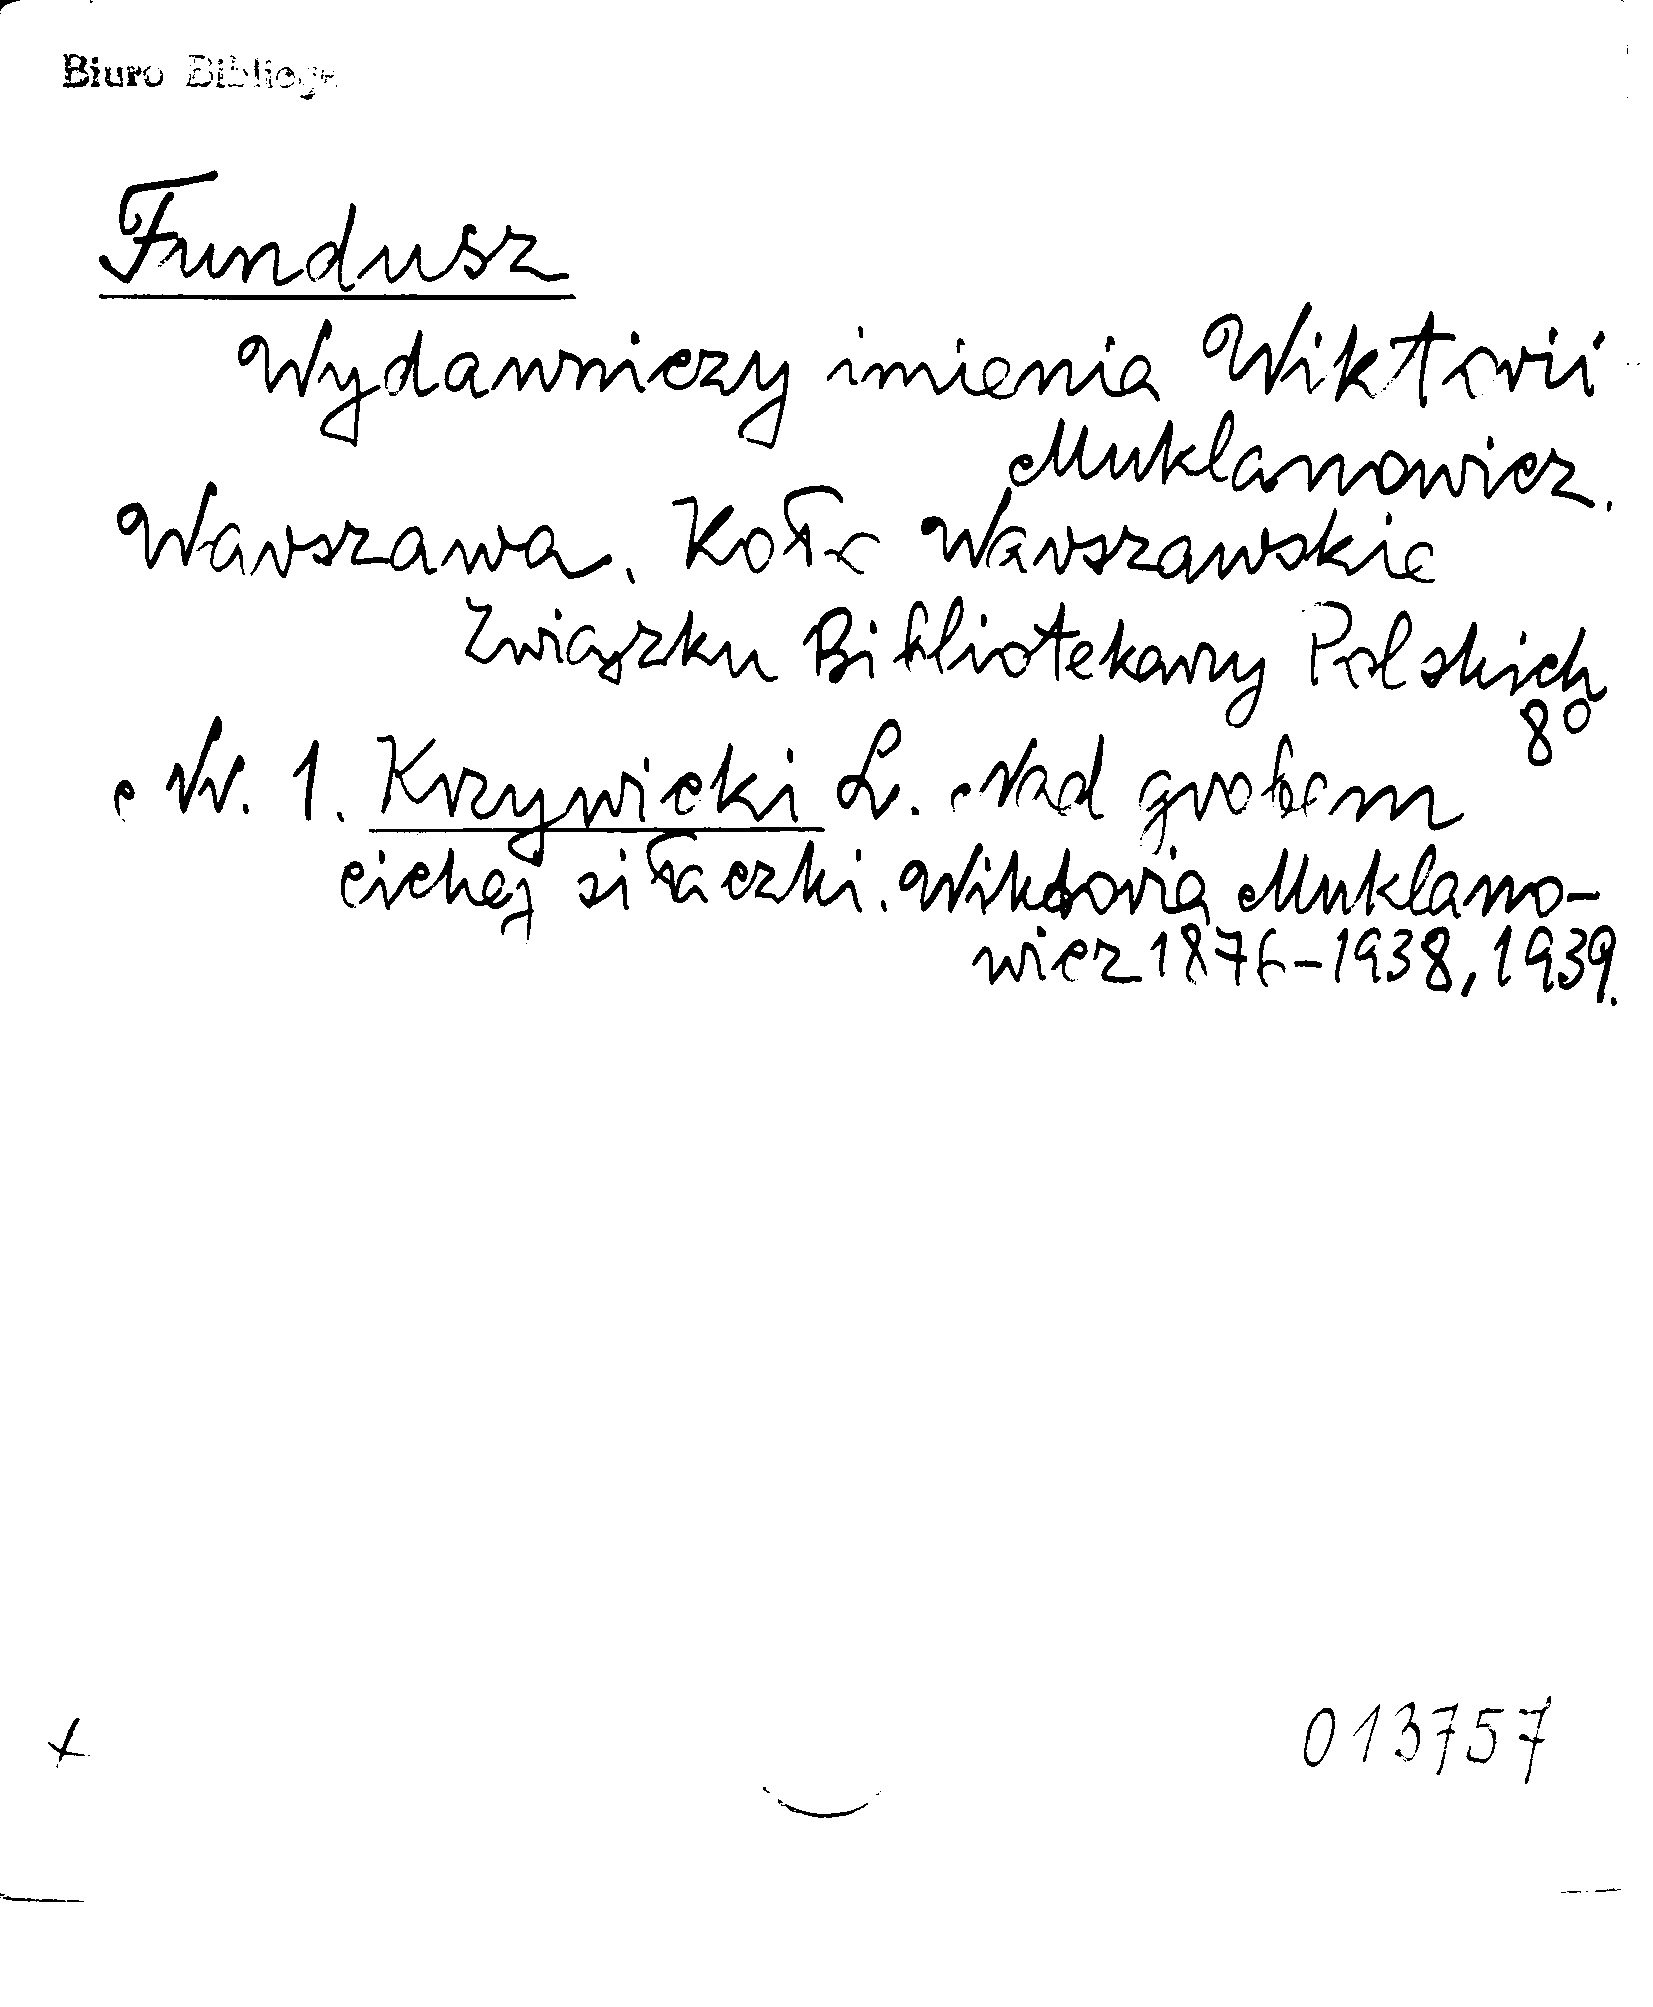 Biuro Bibliogr
Fundusz
Wydawniczy imienia Wiktorii
Muklanowicz.
Warszawa. Koło Warszawskie
Związku Bibliotekarzy Polskich
8°
Nr. 1. Krzywicki L. Nad grobem
cichej siłaczki. Wiktoria Muklano-
wicz 1876-1938, 1939.
x
013757